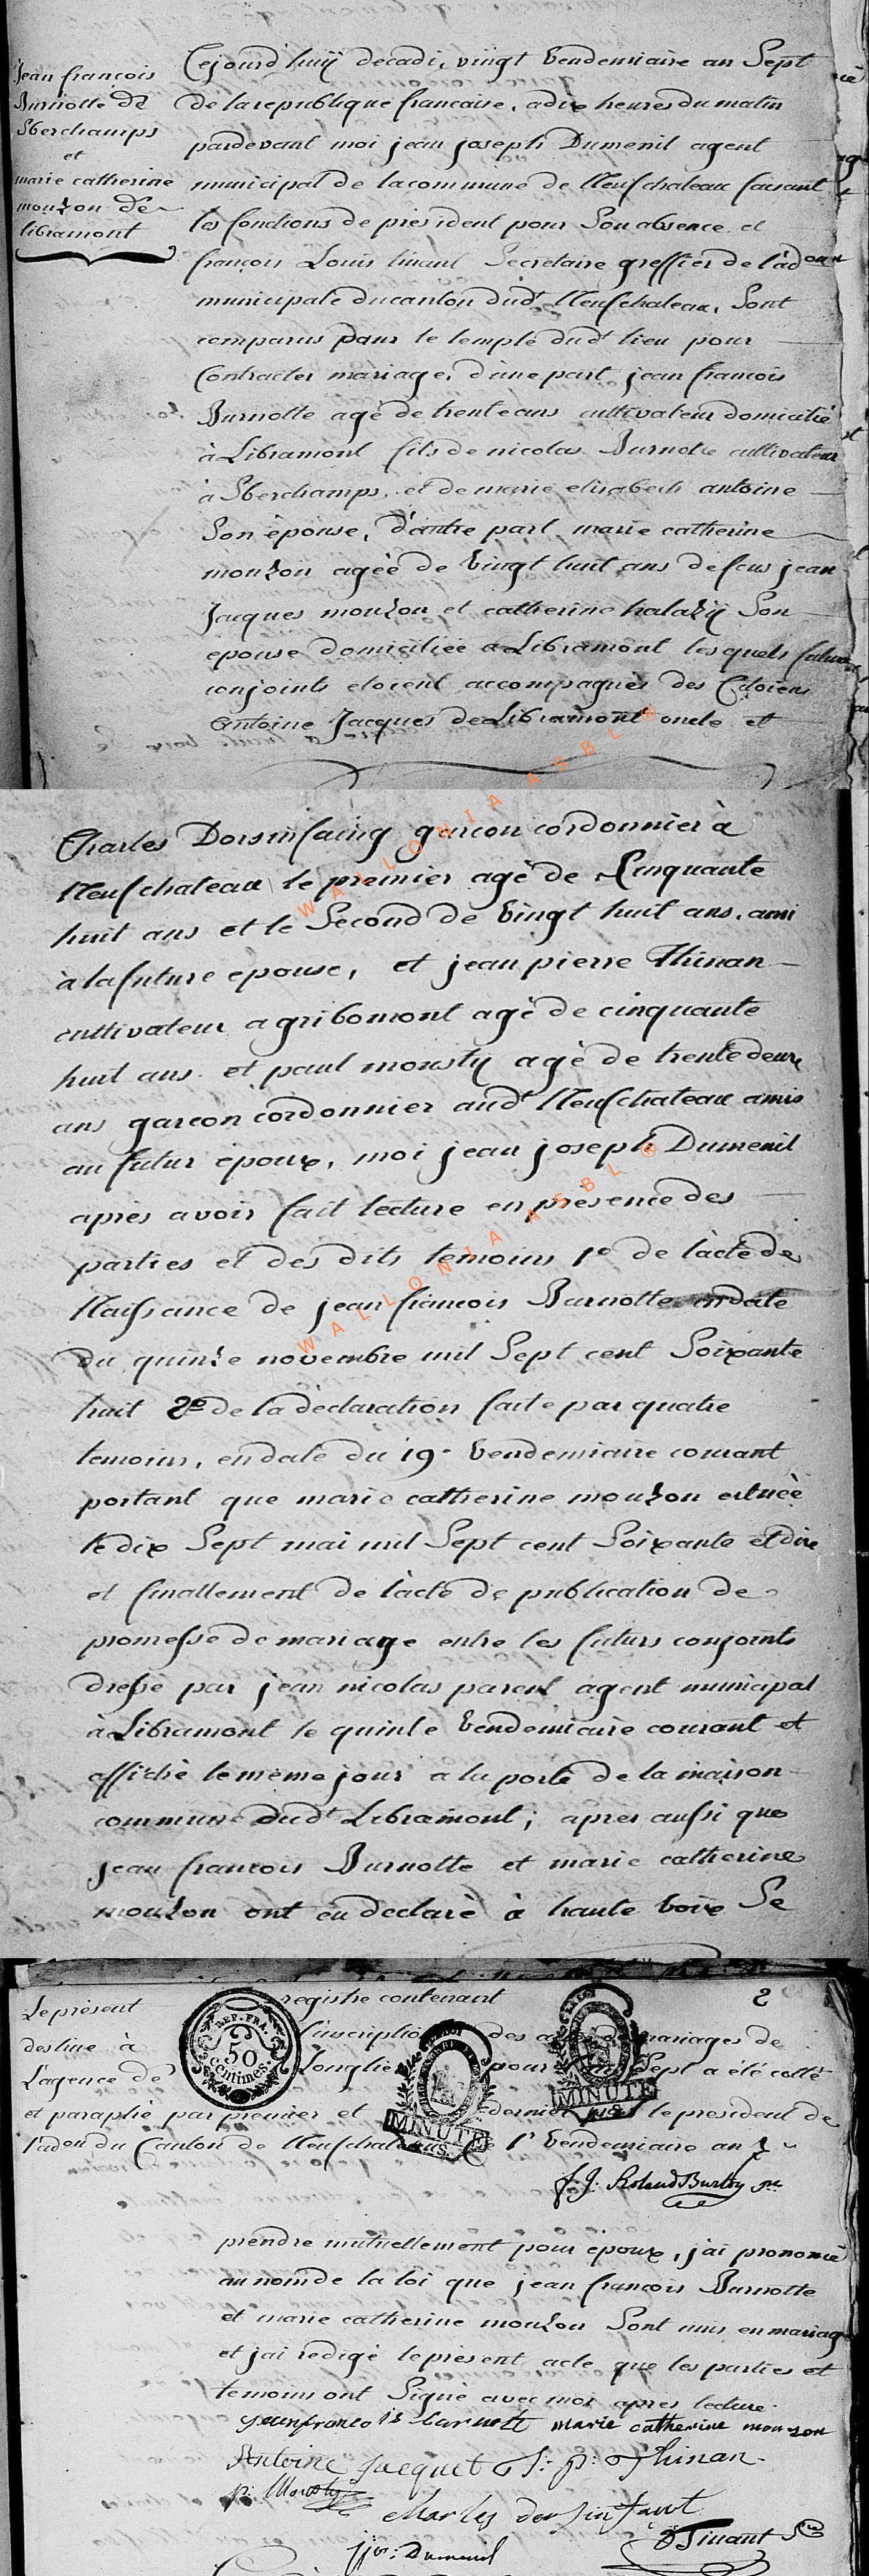 Jean francois
Burnotte de
Sberchamps
et
marie catherine
mouzon de
libramont
Cejourd'huy decadi, vingt Vendemiaire an Sept
de la republique francaise, a dix heures du matin
pardevant moi jean joseph Dumenil agent
municipal de la commune de Neufchateau faisant
les fonctions de president pour Son absence et
françois Louis tinant Secretaire greffier de l'adon
municipale du canton dudt Neufchateau, Sont
comparus dans le temple dudt lieu pour
Contracter mariage, d'une part jean francois
Burnotte agé de trente ans cultivateur domicilié
à Libramont fils de nicolas Burnotte cultivateur
à Sberchamps, et de marie elisabeth antoine
Son épouse, d'autre part marie catherine
mouzon agée de Vingt huit ans de feus jean
Jacques mouzon et catherine halazy Son
epouse domiciliée a Libramont lesquels futurs
conjoints etoient accompagnés des Citoiens
Antoine Jacques de Libramont oncle et
WALLONIA ASBL ®
Charles Dorsinfaing garcon cordonnier à
Neufchateau le premier agé de Cinquante
huit ans et le Second de Vingt huit ans, ami
à la future epouse, et jean pierre Thinan
cultivateur a gribomont agé de cinquante
huit ans et paul mousty agé de trente deux
ans garcon cordonnier audt Neufchateau amis
au futur époux, moi jean joseph Dumenil
après avoir fait lecture en présence des
parties et des dits temoins 1o de l'acte de
Naissance de jean francois Burnotte en date
du quinze novembre mil Sept cent Soixante
huit 2o de la déclaration faite par quatre
temoins, en date du 19e Vendemiaire courant
portant que marie catherine mouzon est née
le dix Sept mai mil Sept cent Soixante et dix
et finallement de l'acte de publication de
promesse de mariage entre les futurs conjoints
dressé par jean nicolas parent agent municipal
à Libramont le quinze Vendemiaire courant et
affiché le meme jour a la porte de la maison
commune dudt Libramont; apres aussi que
jean francois Burnotte et marie catherine
mouzon ont eu declaré à haute voix Se
WALLONIA ASBL ®
2
Le présent registre contenant
destiné à l'inscription des actes de mariages de
L'agence de Longlier pour l'an Sept a été cotté
et paraphé par premier et dernier par le president de
l'adon du Canton de Neufchateau le 1r Vendemiaire an 7
REP. FRA.
50
centimes.
MINUTE
MINUTE
prendre mutuellement pour époux, j'ai prononcé
au nom de la loi que jean francois Burnotte
et marie catherine mouzon Sont unis en mariage
et j'ai redigé le present acte que les parties et
temoins ont Signé avec moi apres lecture.
jean francois burnotte marie catherine mouzon
Antoine Jacquet J: p: Thinan
p: Mousty
charles dorsinfant
jjos: Dumenil
Tinant